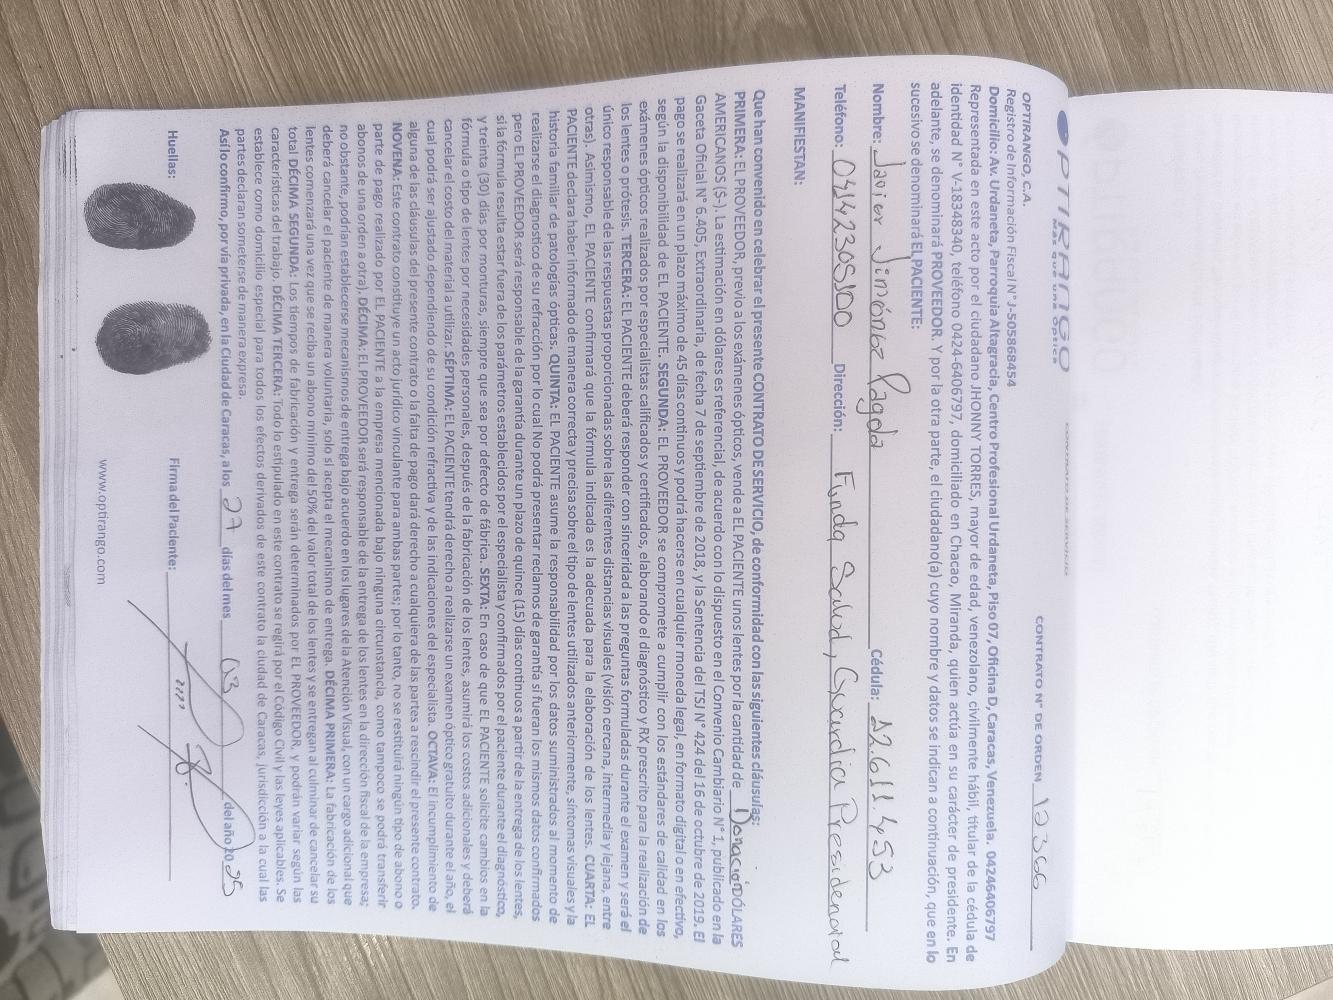 OPTIRANGO
más que una óptica
CONTRATO DE SERVICIO
CONTRATO N° DE ORDEN 12366
OPTIRANGO, C.A.
Registro de Información Fiscal N° J-505868454
Domicilio: Av. Urdaneta, Parroquia Altagracia, Centro Profesional Urdaneta, Piso 07, Oficina D, Caracas, Venezuela. 04246406797
Representada en este acto por el ciudadano JHONNY TORRES, mayor de edad, venezolano, civilmente hábil, titular de la cédula de
identidad N° V-18348340, teléfono 0424-6406797, domiciliado en Chacao, Miranda, quien actúa en su carácter de presidente. En
adelante, se denominará PROVEEDOR. Y por la otra parte, el ciudadano(a) cuyo nombre y datos se indican a continuación, que en lo
sucesivo se denominará EL PACIENTE:
Nombre: Javier Jiménez Cédula: 22.611.453
Teléfono: 04142305100 Dirección: Funda Salud, Guardia Presidencial
MANIFIESTAN:
Que han convenido en celebrar el presente CONTRATO DE SERVICIO, de conformidad con las siguientes cláusulas:
PRIMERA: EL PROVEEDOR, previo a los exámenes ópticos, vende a EL PACIENTE unos lentes por la cantidad de Donación DÓLARES
AMERICANOS ($-). La estimación en dólares es referencial, de acuerdo con lo dispuesto en el Convenio Cambiario N° 1, publicado en la
Gaceta Oficial N° 6.405, Extraordinaria, de fecha 7 de septiembre de 2018, y la Sentencia del TSJ N° 424 del 16 de octubre de 2019. El
pago se realizará en un plazo máximo de 45 días continuos y podrá hacerse en cualquier moneda legal, en formato digital o en efectivo,
según la disponibilidad de EL PACIENTE. SEGUNDA: EL PROVEEDOR se compromete a cumplir con los estándares de calidad en los
exámenes ópticos realizados por especialistas calificados y certificados, elaborando el diagnóstico y RX prescrito para la realización de
los lentes o prótesis. TERCERA: EL PACIENTE deberá responder con sinceridad a las preguntas formuladas durante el examen y será el
único responsable de las respuestas proporcionadas sobre las diferentes distancias visuales (visión cercana, intermedia y lejana, entre
otras). Asimismo, EL PACIENTE confirmará que la fórmula indicada es la adecuada para la elaboración de los lentes. CUARTA: EL
PACIENTE declara haber informado de manera correcta y precisa sobre el tipo de lentes utilizados anteriormente, síntomas visuales y la
historia familiar de patologías ópticas. QUINTA: EL PACIENTE asume la responsabilidad por los datos suministrados al momento de
realizarse el diagnostico de su refracción por lo cual No podrá presentar reclamos de garantía si fueran los mismos datos confirmados
pero EL PROVEEDOR será responsable de la garantía durante un plazo de quince (15) días continuos a partir de la entrega de los lentes,
si la fórmula resulta estar fuera de los parámetros establecidos por el especialista y confirmados por el paciente durante el diagnóstico,
y treinta (30) días por monturas, siempre que sea por defecto de fábrica. SEXTA: En caso de que EL PACIENTE solicite cambios en la
fórmula o tipo de lentes por necesidades personales, después de la fabricación de los lentes, asumirá los costos adicionales y deberá
cancelar el costo del material a utilizar. SÉPTIMA: EL PACIENTE tendrá derecho a realizarse un examen óptico gratuito durante el año, el
cual podrá ser ajustado dependiendo de su condición refractiva y de las indicaciones del especialista. OCTAVA: El incumplimiento de
alguna de las cláusulas del presente contrato o la falta de pago dará derecho a cualquiera de las partes a rescindir el presente contrato.
NOVENA: Este contrato constituye un acto jurídico vinculante para ambas partes; por lo tanto, no se restituirá ningún tipo de abono o
parte de pago realizado por EL PACIENTE a la empresa mencionada bajo ninguna circunstancia, como tampoco se podrá transferir
abonos de una orden a otra). DÉCIMA: EL PROVEEDOR será responsable de la entrega de los lentes en la dirección fiscal de la empresa;
no obstante, podrían establecerse mecanismos de entrega bajo acuerdo en los lugares de la Atención Visual, con un cargo adicional que
deberá cancelar el paciente de manera voluntaria, solo si acepta el mecanismo de entrega. DÉCIMA PRIMERA: La fabricación de los
lentes comenzará una vez que se reciba un abono mínimo del 50% del valor total de los lentes y se entregan al culminar de cancelar su
total DÉCIMA SEGUNDA: Los tiempos de fabricación y entrega serán determinados por EL PROVEEDOR, y podrán variar según las
características del trabajo. DÉCIMA TERCERA: Todo lo estipulado en este contrato se regirá por el Código Civil y las leyes aplicables. Se
establece como domicilio especial para todos los efectos derivados de este contrato la ciudad de Caracas, jurisdicción a la cual las
partes declaran someterse de manera expresa.
Así lo confirmo, por vía privada, en la Ciudad de Caracas, a los 27 días del mes 03 del año 2025
Huellas: Firma del Paciente:
www.optirango.com